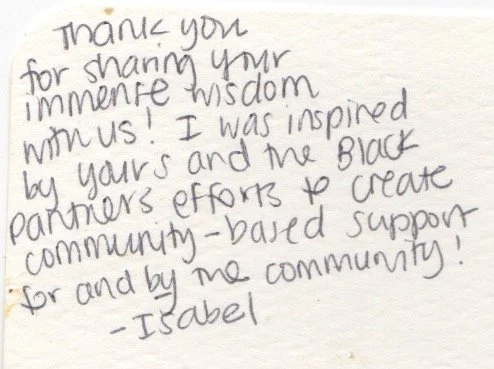 Thank you
for sharing your
immense wisdom
with us! I was inspired
by yours and the Black
partners efforts to create
community-based support
for and by the community!
-Isabel